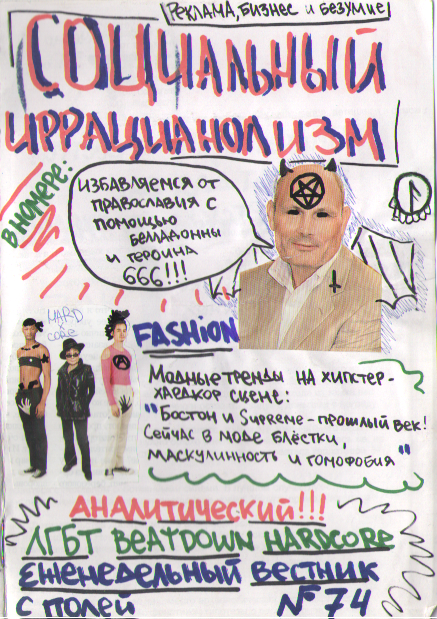 РЕКЛАМА, БИЗНЕС и БЕЗУМИЕ
СОЦИАЛЬНЫЙ
ИРРАЦИАНОЛИЗМ
В НОМЕРЕ:
ИЗБАВЛЯЕМСЯ ОТ
ПРАВОСЛАВИЯ С
ПОМОЩЬЮ
БЕЛЛАДОННЫ
И ГЕРОИНА
666!!!
HARD
x
CORE
FASHION
МОДНЫЕ ТРЕНДЫ НА ХИПСТЕР-
ХАРДКОР СЦЕНЕ:
"БОСТОН И SUPREME - ПРОШЛЫЙ ВЕК!
СЕЙЧАС В МОДЕ БЛЁСТКИ,
МАСКУЛИННОСТЬ И ГОМОФОБИЯ"
АНАЛИТИЧЕСКИЙ!!!
ЛГБТ BEATDOWN HARDCORE
ЕЖЕНЕДЕЛЬНЫЙ ВЕСТНИК
С ПОЛЕЙ №74